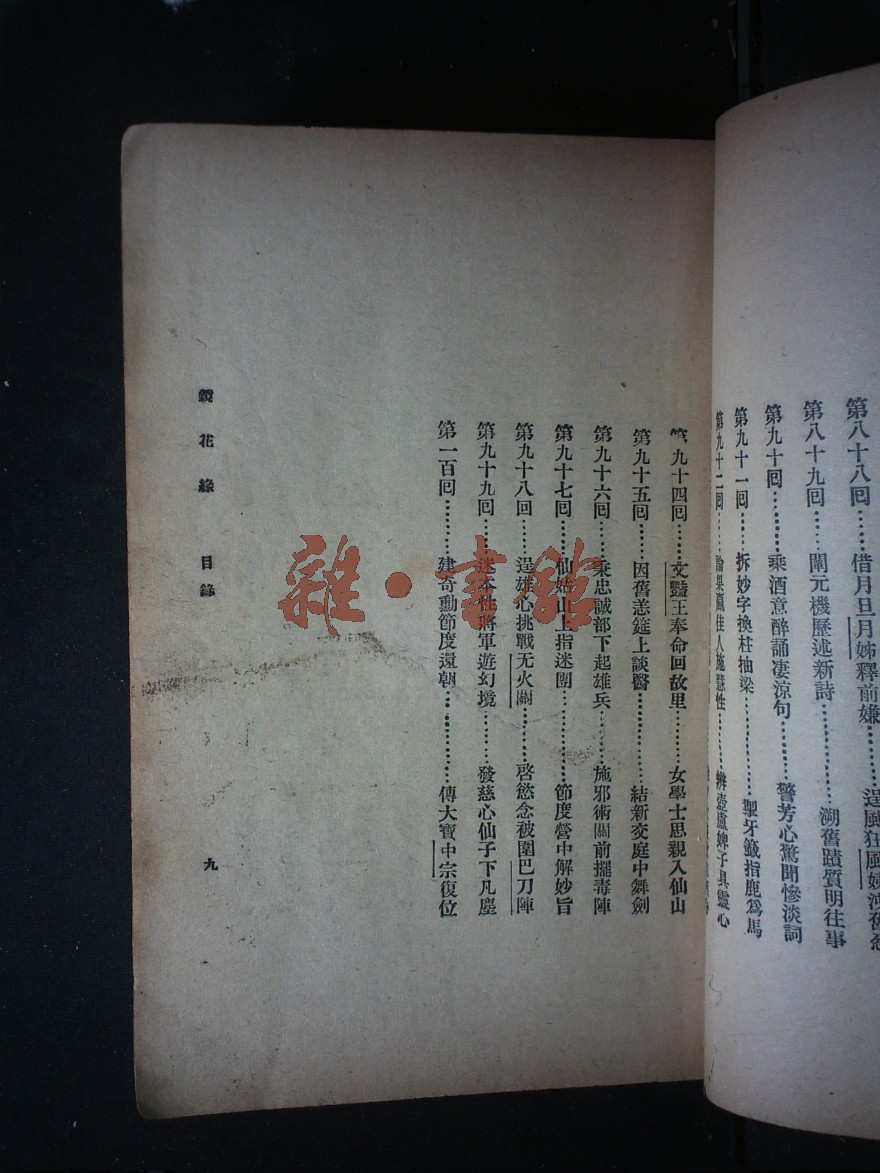 第八十八回……借月旦月姊釋前嫌………逞風狂風姨洩舊忿
第八十九回……闡元機歷述新詩…………溯舊蹟質明往事
第九十回………乘酒意醉誦凄涼句………警芳心驚聞慘淡詞
第九十一回……拆妙字換柱抽梁…………掣牙籤指鹿爲馬
第九十二回……論果臝佳人施慧性………辨壺盧婢子具靈心
第九十四回……文豔王奉命回故里………女學士思親入仙山
第九十五回……因舊恙筵上談醫…………結新交庭中舞劍
第九十六回……秉忠誠部下起雄兵………施邪術關前擺毒陣
第九十七回……仙姑山上指迷團…………節度營中解妙旨
第九十八回……逞雄心挑戰无火關………啓慾念被圍巴刀陣
第九十九回……迷本性將軍遊幻境………發慈心仙子下凡塵
第一百回………建奇勳節度還朝…………傳大寶中宗復位
鏡花緣　目錄
九
雜·書館